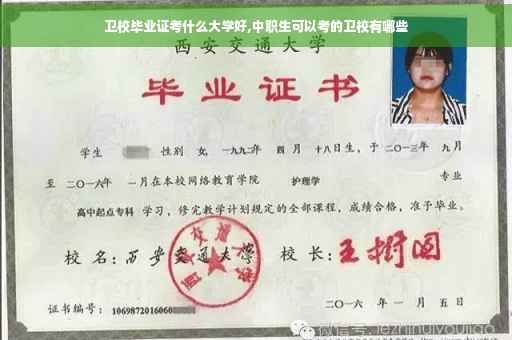 卫校毕业证考什么大学好,中职生可以考的卫校有哪些
西安交通大学
毕业证书
学生 性别 女, 一九九二年 四月 十八日生, 于 二〇一三年 九月
至 二〇一六年 一月在本校网络教育学院 护理学 专业
高中起点专科 学习, 修完教学计划规定的全部课程, 成绩合格, 准予毕业。
校名: 西安交通大学 校长: 王树国
西安交通大学
证书编号: 1069872016060
二〇一六年 一月 五日
微信号: jezhinuiyoujiao